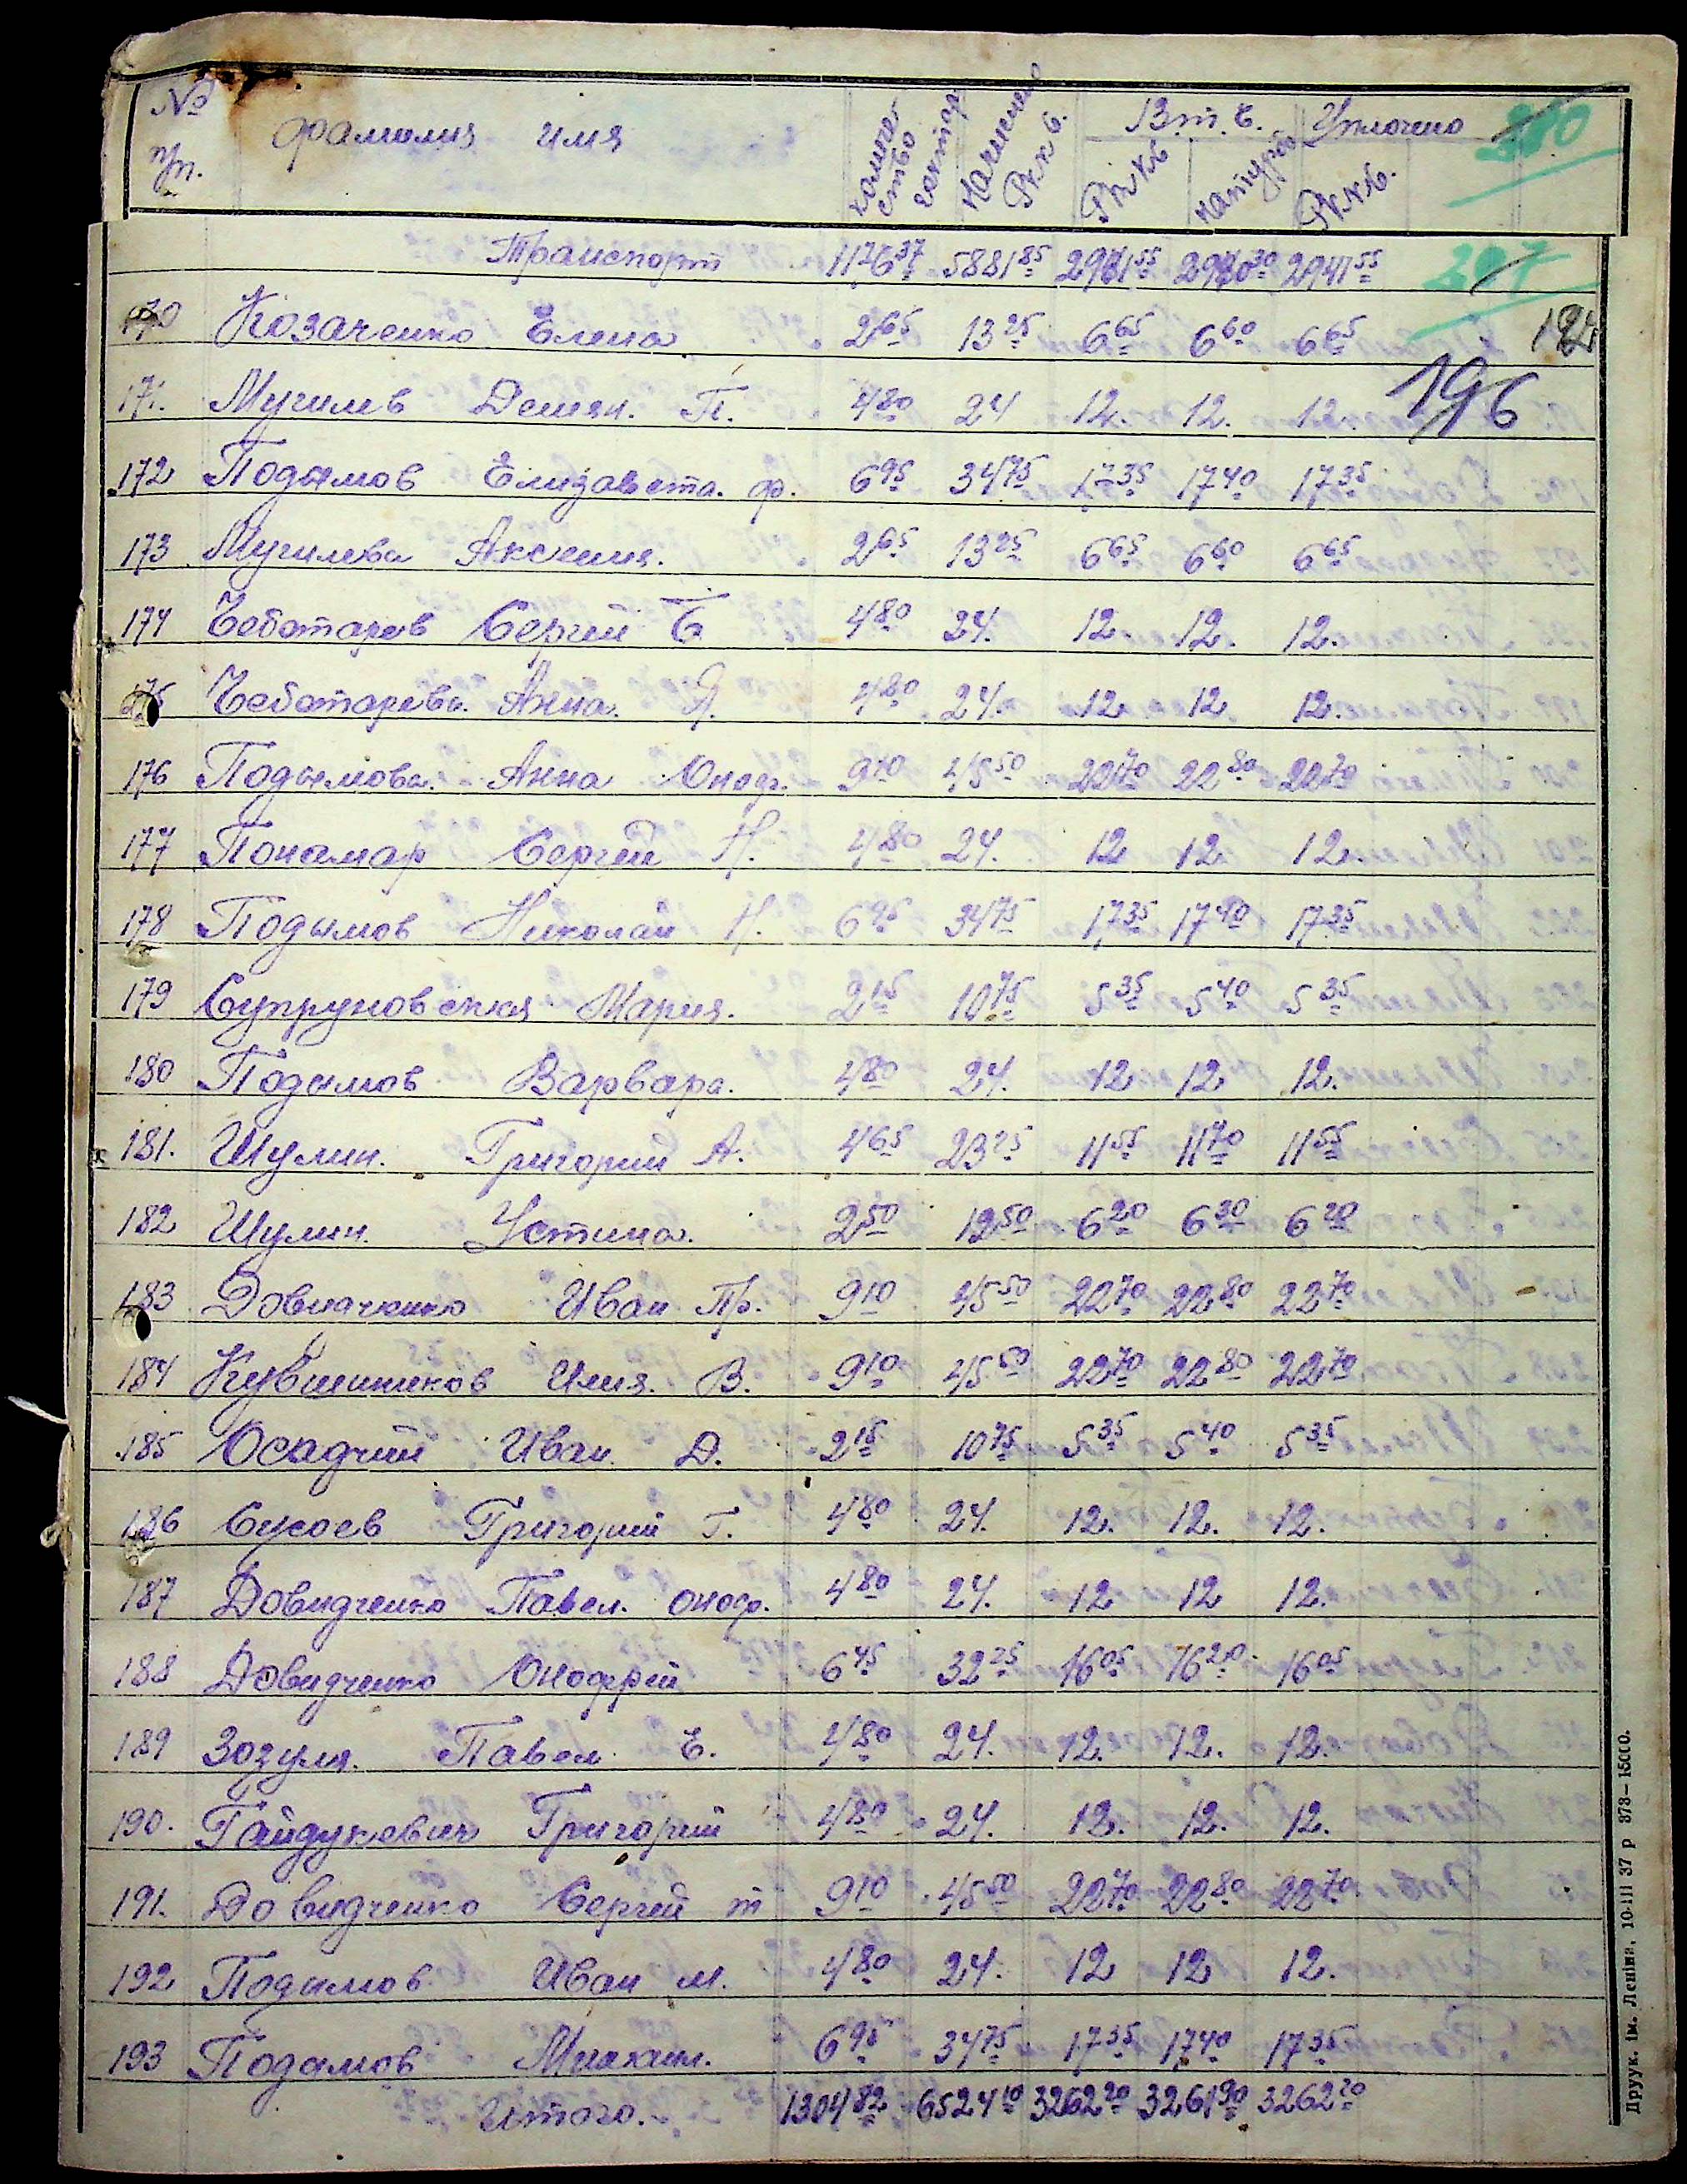 № п/п. Фамилия имя количество гектар Начислено Рк к б. В т. ч. Уплочено 380
Рк кб натурой Рк кб.
Транспорт 1126 37 5881 85 2941 55 2940 30 2941 55 297
170 Козаченко Елена 2 65 13 25 6 65 6 60 6 65
196
171. Мугилев Демян. П. 4 80 24 12. 12. 12.
172 Подымов Елизавета. ф. 6 95 34 75 17 35 17 40 17 35
173 Мугилева Аксения. 2 65 13 25 6 65 6 60 6 65
174 Чеботарев Сергий Е 4 80 24. 12. 12. 12.
175 Чеботарева. Анна. Я. 4 80 24. 12. 12 12.
176 Подымова. Анна Оноф. 9 10 45 50 22 70 22 80 22 70
177 Понамар Сергей Н. 4 80 24. 12 12. 12.
178 Подымов Николай Н. 6 95 34 75 17 35 17 40 17 35
179 Супруновская Мария. 2 15 10 75 5 35 5 40 5 35
180 Подымов Варвара. 4 80 24. 12 12 12.
181. Шулин. Григорий А. 4 65 23 25 11 55 11 70 11 55
182 Шулин. Устина. 2 50 12 50 6 20 6 30 6 20
183 Довидченко Иван Пр. 9 10 45 50 22 70 22 80 22 70
184 Кувшинников Илия. В. 9 10 45 50 22 70 22 80 22 70
185 Осадчий Иван Д. 2 15 10 75 5 35 5 40 5 35
186 Сухоев Григорий Г. 4 80 24. 12. 12. 12.
187 Довидченко Павел. оноф. 4 80 24. 12 12 12.
188 Довидченко Онофрий 6 45 32 25 16 05 16 20 16 05
189 Зозуля. Павел Е. 4 80 24. 12. 12. 12.
190. Гайдукевич Григорий 4 80 24. 12. 12. 12.
191. Довидченко Сергей т 9 10 45 50 22 70 22 80 22 70
192 Подымов Иван м. 4 80 24. 12 12 12.
193 Подамов Михаил. 6 95 34 75 17 35 17 40 17 35
Итого. 1304 82 6524 10 3262 20 3261 90 3262 20
Друк. ім. Леніна, 10-III 37 р 373—15000.